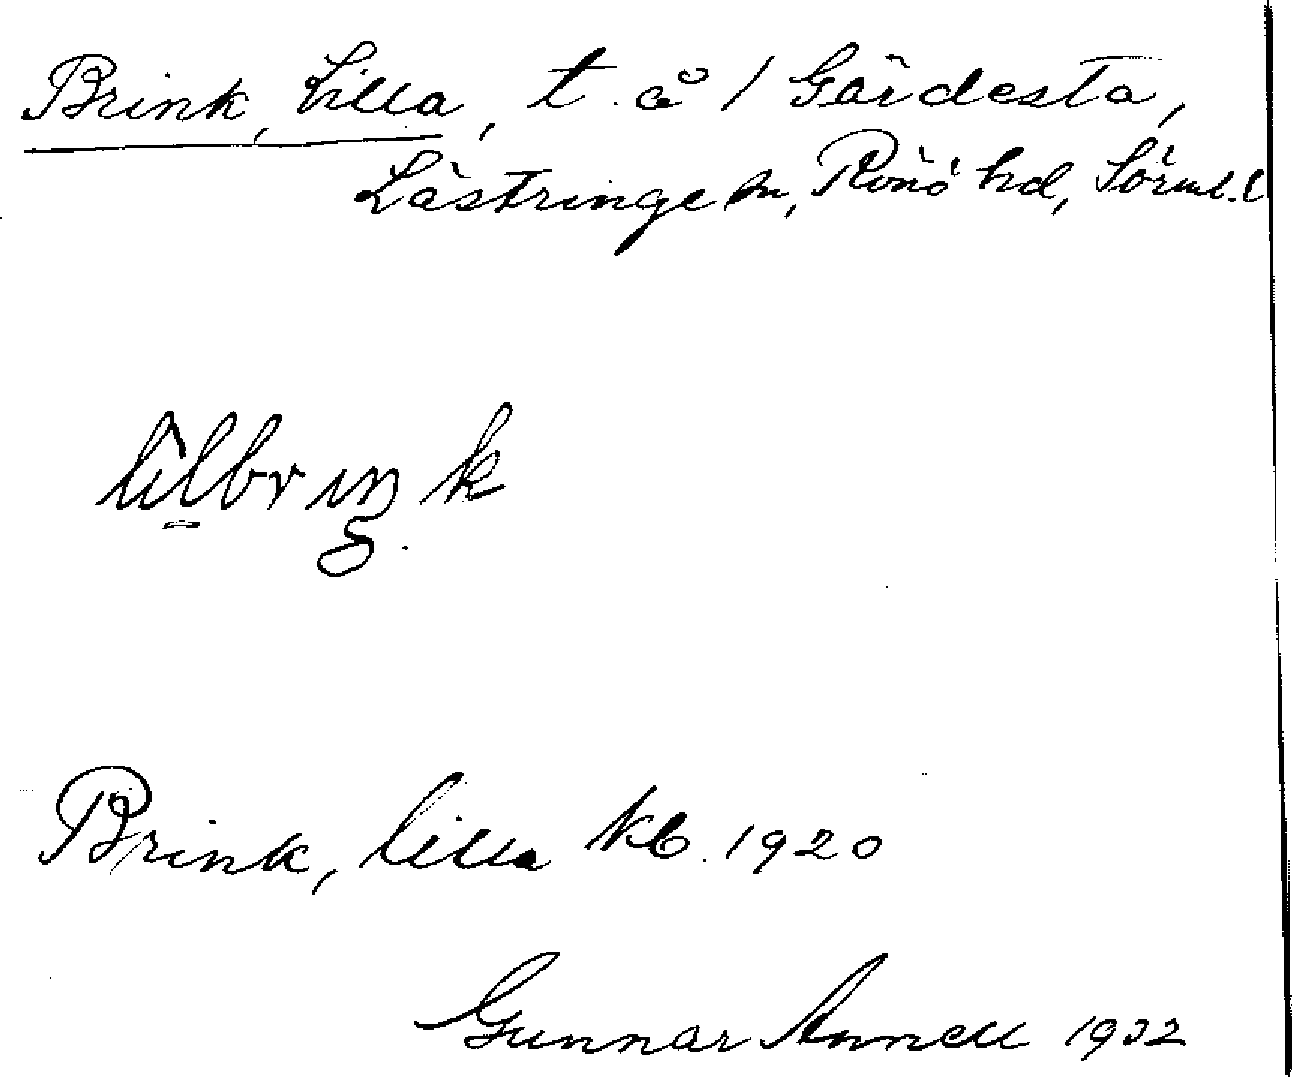 Brink, Lilla, t. å 1 Gärdesta,
Lästringe sn, Rönö hd, Sörml. l
lilbriŋk
Brink, lilla kb. 1920
Gunnar Annell 1932